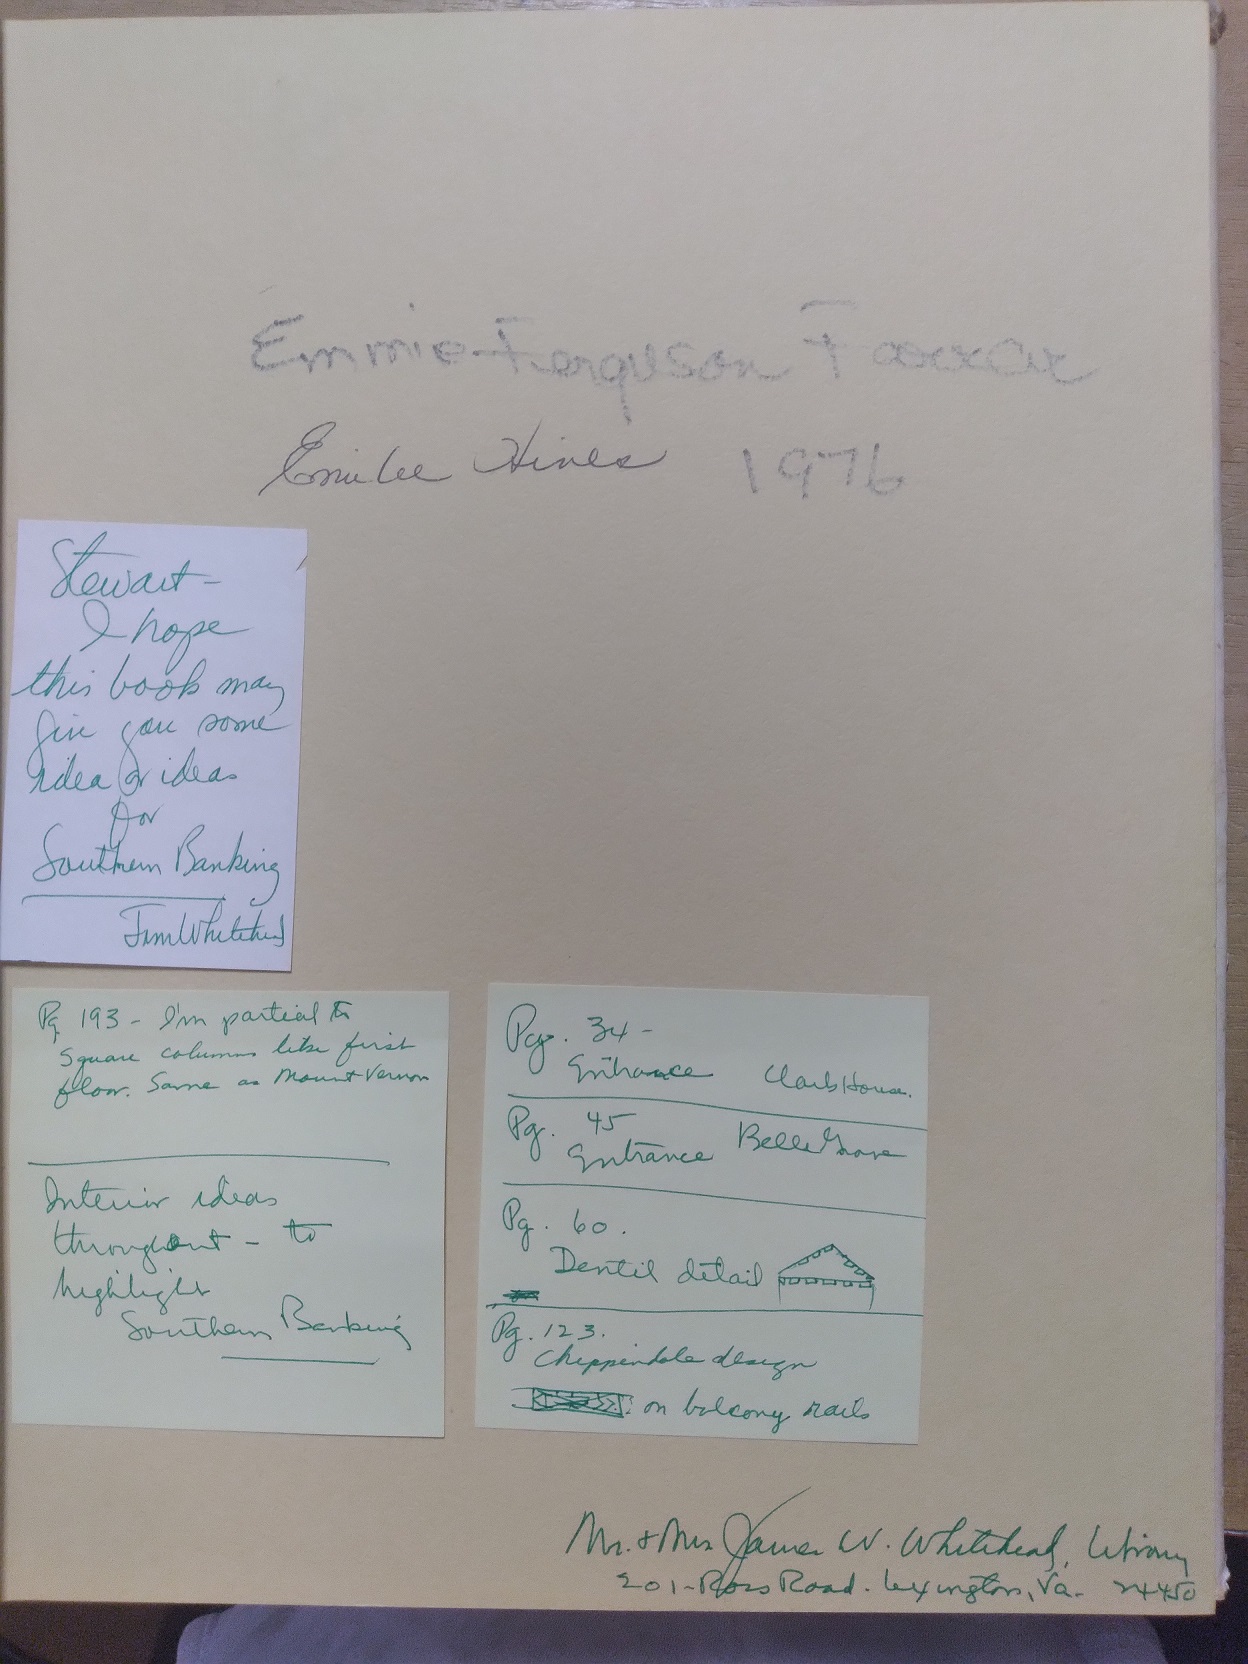 Emmie Ferguson Farrar
Emilee Hines 1976
Stewart-
I hope
this book may
give you some
idea or ideas
for
Southern Banking
Jim Whitehead
Pg 193 - I'm partial to
square columns like first
floor. Same as Mount Vernon
Interior ideas
throughout - to
highlight
Southern Banking
Pg. 34-
Entrance Clark House.
Pg. 45
Entrance Belle Grove
Pg. 60.
Dentil detail
Pg. 123.
Chippendale design
on balcony rails
Mr. & Mrs James W. Whitehead, Library
201-Ross Road. Lexington, Va. 24450